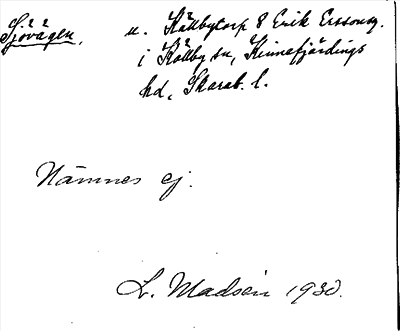 Sjövägen, u. Källbytorp 8 Erik Erssons,
i Källby sn, Kinnefjärdings
hd, Skarab. l.
Nämnes ej.
L. Madsén 1930.